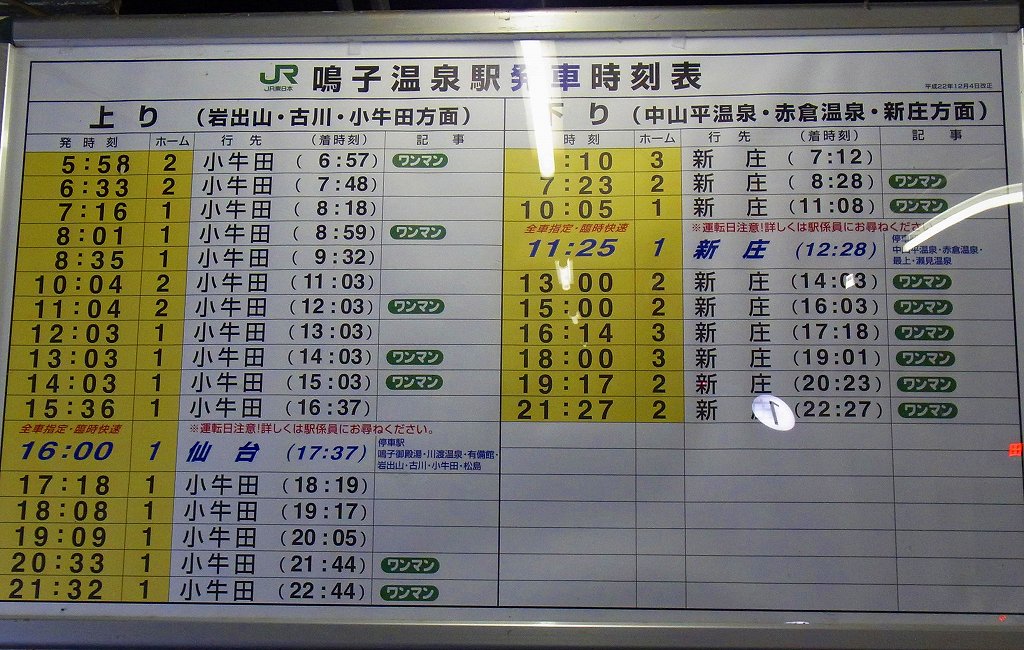 JR JR東日本 鳴子温泉駅発車時刻表
平成22年12月4日改正
上り (岩出山・古川・小牛田方面)
発時刻 ホーム 行先 (着時刻) 記事
5:58 2 小牛田 (6:57) ワンマン
6:33 2 小牛田 (7:48)
7:16 1 小牛田 (8:18)
8:01 1 小牛田 (8:59) ワンマン
8:35 1 小牛田 (9:32)
10:04 2 小牛田 (11:03)
11:04 2 小牛田 (12:03) ワンマン
12:03 1 小牛田 (13:03)
13:03 1 小牛田 (14:03) ワンマン
14:03 1 小牛田 (15:03) ワンマン
15:36 1 小牛田 (16:37)
全車指定・臨時快速 ※運転日注意!詳しくは駅係員にお尋ねください。
16:00 1 仙台 (17:37) 停車駅
鳴子御殿湯・川渡温泉・有備館・
岩出山・古川・小牛田・松島
17:18 1 小牛田 (18:19)
18:08 1 小牛田 (19:17)
19:09 1 小牛田 (20:05)
20:33 1 小牛田 (21:44) ワンマン
21:32 1 小牛田 (22:44) ワンマン
下り (中山平温泉・赤倉温泉・新庄方面)
時刻 ホーム 行先 (着時刻) 記事
:10 3 新庄 (7:12)
7:23 2 新庄 (8:28) ワンマン
10:05 1 新庄 (11:08) ワンマン
全車指定・臨時快速 ※運転日注意!詳しくは駅係員にお尋ねくださ
11:25 1 新庄 (12:28) 停車
中山平温泉・赤倉温泉・
最上・瀬見温泉
13:00 2 新庄 (14:03) ワンマン
15:00 2 新庄 (16:03) ワンマン
16:14 3 新庄 (17:18) ワンマン
18:00 3 新庄 (19:01) ワンマン
19:17 2 新庄 (20:23) ワンマン
21:27 2 新 (22:27) ワンマン